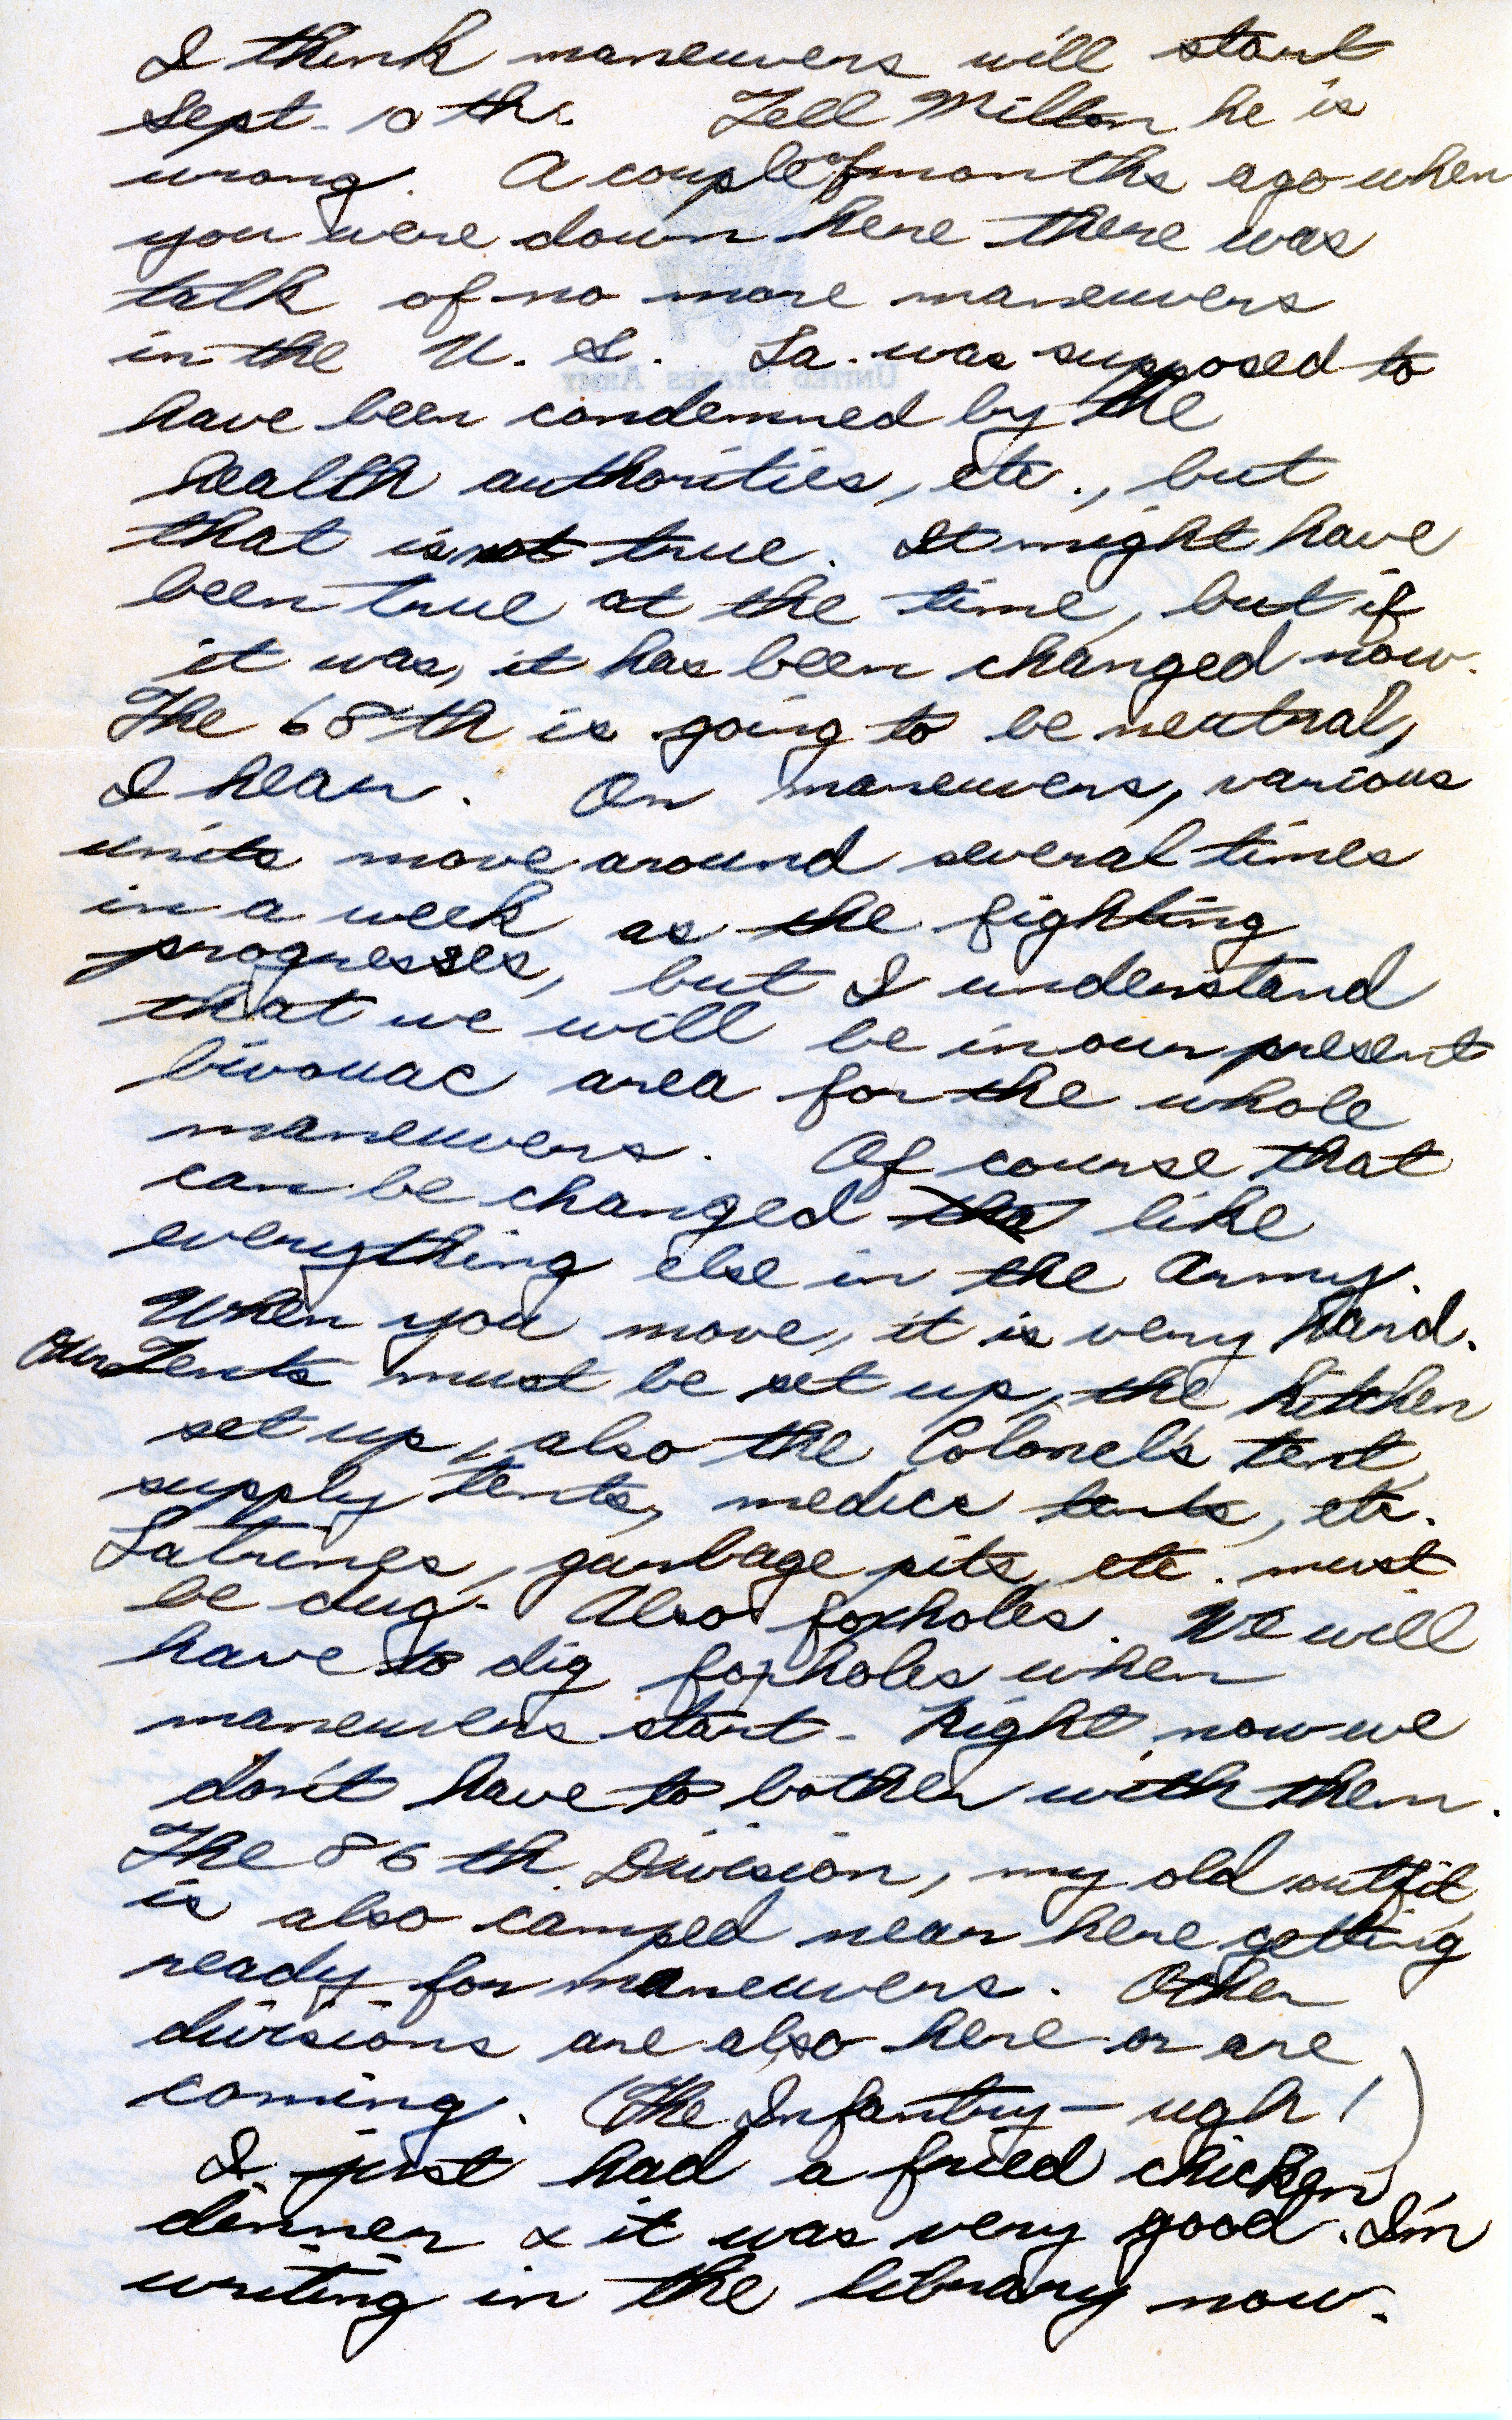 I think maneuvers will start
Sept. 10th. Tell Milton he is
wrong. A couple of months ago when
you were down here there was
talk of no more maneuvers
in the U. S. La. was supposed to
UNITED STATES ARMY
have been condemned by the
health authorities, etc., but
that is not true. It might have
been true at the time, but if
it was, it has been changed now.
The 68th is going to be neutral,
I hear. On maneuvers, various
units move around several times
in a week as the fighting
progresses, but I understand
that we will be in our present
bivouac area for the whole
maneuvers. Of course that
can be changed like
everything else in the Army.
When you move, it is very hard.
Our Tents must be set up, the kitchen
set up, also the Colonel's tent,
supply tents, medics tents, etc.
Latrines, garbage pits, etc. must
be dug. Also foxholes. We will
have to dig foxholes when
maneuvers start. Right now we
don't have to bother with them.
The 86th Division, my old outfit,
is also camped near here getting
ready for maneuvers. Other
divisions are also here or are
coming. (The Infantry — ugh!)
I just had a fried chicken
dinner & it was very good. I'm
writing in the library now.